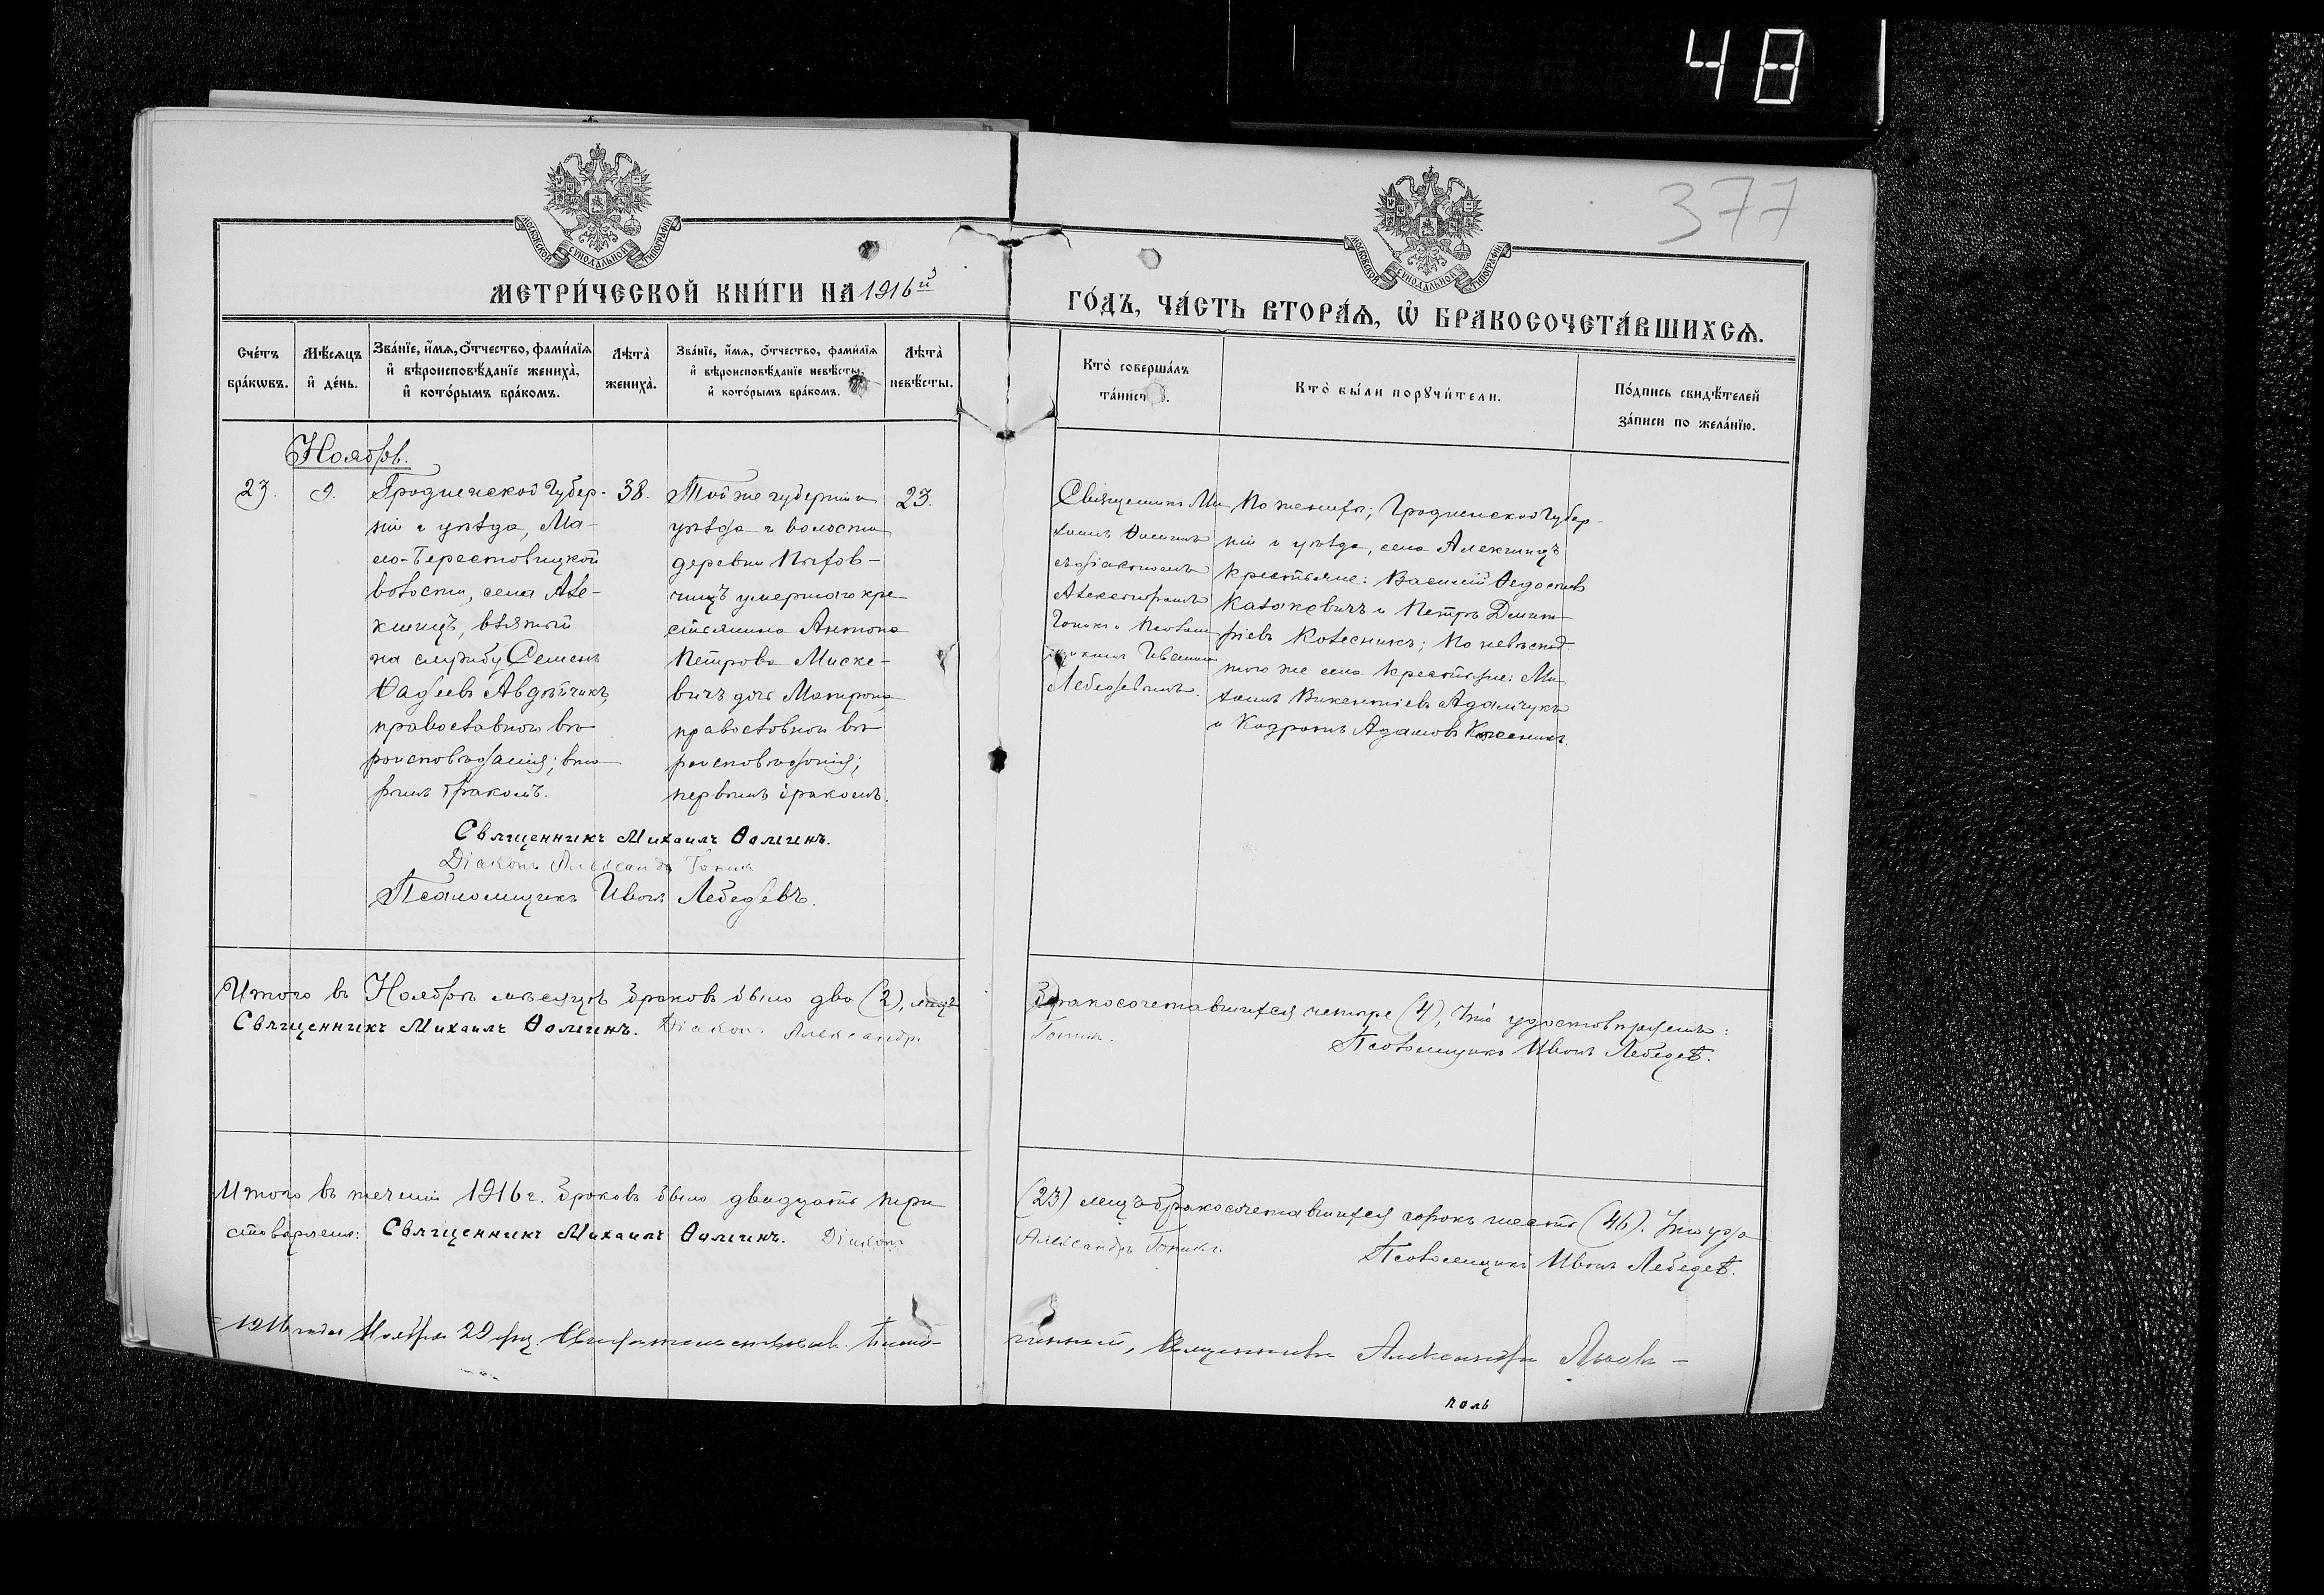 48
377
МОСКОВСКОЙ СУНОДАЛЬНОЙ ТИПОГРАФІИ
МОСКОВСКОЙ СУНОДАЛЬНОЙ ТИПОГРАФІИ
МЕТРИ́ЧЕСКОЙ КНИ́ГИ НА 1916й
ГО́ДЪ, ЧА́СТЬ ВТОРА́Ѧ, Ѡ҆ БРАКОСОЧЕТА́ВШИХСѦ.
Сче́тъ бра́кѡвъ.
Мѣ́сяцъ и҆ де́нь.
Зва́нїе, и҆́мѧ, ѻ҆́тчество, фами́лїѧ и҆ вѣроисповѣ́данїе жениха̀, и҆ кото́рымъ бра́комъ.
Лѣта̀ жениха̀.
Зва́нїе, и҆́мѧ, ѻ҆́тчество, фами́лїѧ и҆ вѣроисповѣ́данїе невѣ́сты, и҆ кото́рымъ бра́комъ.
Лѣта̀ невѣ́сты.
Кто̀ соверша́лъ
Кто̀ бы́ли порꙋчи́тели.
По́дпись свидѣ́телей за́писи по жела́нїю.
Ноябрь.
23.
9.
Гродненской Губер-
ніи и уѣзда, Ма-
ло-Берестовицкой
волости, села Але-
кшицъ, взятый
на службу Семенъ
Ѳадѣевъ Авдѣйчикъ,
православнаго вѣ-
роисповѣданія; вто-
рымъ бракомъ.
38.
Той же губерніи и
уѣзда и волости
деревни
умершаго кре-
стьянина Антона
Петрова Миске-
вичъ дочь Матрона,
православнаго вѣ-
роисповѣданія;
первымъ бракомъ.
23.
Священникъ Ми-
хаилъ Ѳоминъ
съ діакономъ
Александромъ
Гомик и Псалом-
щикомъ Иваномъ
Лебедевымъ.
По женихѣ; Гродненской Губер-
ніи и уѣзда, села Алекшицъ
крестьяне: Василій Ѳедотовъ
Казаковичъ и Петръ Дмит-
ріевъ Колесникъ; По невѣстѣ
того же села крестьяне: Ми-
хаилъ Викентіевъ Адамчукъ
и Кодратъ Адамовъ Колесникъ.
Священникъ Михаилъ Ѳоминъ.
Діаконъ Александръ
Псаломщикъ Иванъ Лебедевъ.
Итого въ Ноябрѣ мѣсяцѣ браковъ было два (2), лицъ
бракосочетавшихся четыре (4), что удостовѣряемъ:
Священникъ Михаилъ Ѳоминъ. Діаконъ Александръ
Псаломщикъ Иванъ Лебедевъ.
Итого въ теченіи 1916 г. браковъ было двадцать три
(23) лицъ бракосочетавшихся сорокъ шесть (46). Что удо-
стовѣряемъ: Священникъ Михаилъ Ѳоминъ. Діаконъ
Александръ
Псаломщикъ Иванъ Лебедевъ.
1916 года Ноября 29 дня. Свидѣтельствовалъ. Благо-
чинный, Священникъ Александръ